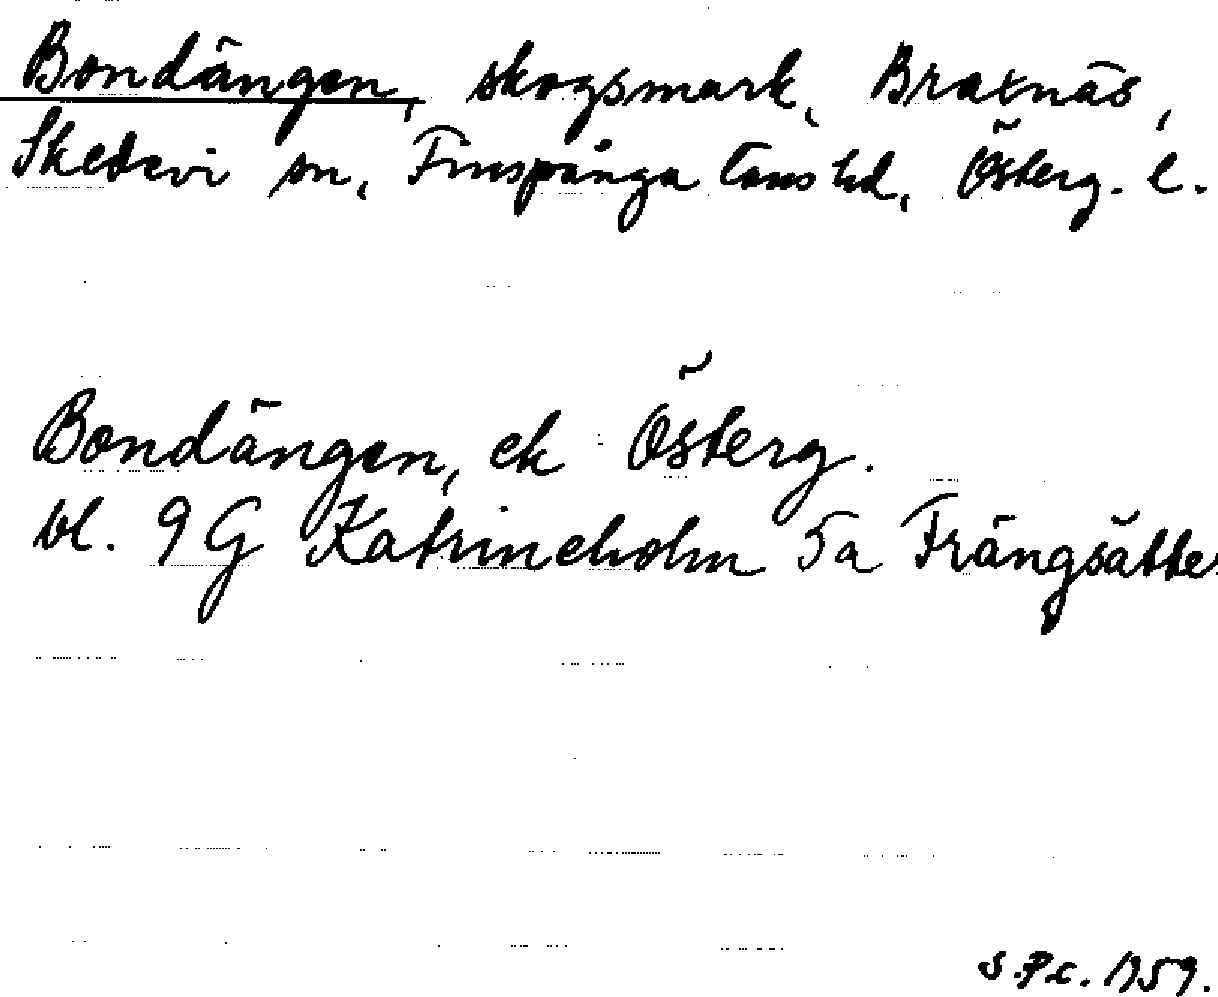 Bondängen, skogsmark, Braxnäs,
Skedevi sn, Finspånga läns hd, Österg. l.
Bondängen, ek Österg.
bl. 9G Katrineholm 5a Frängsätter
S.P.C. 1959.